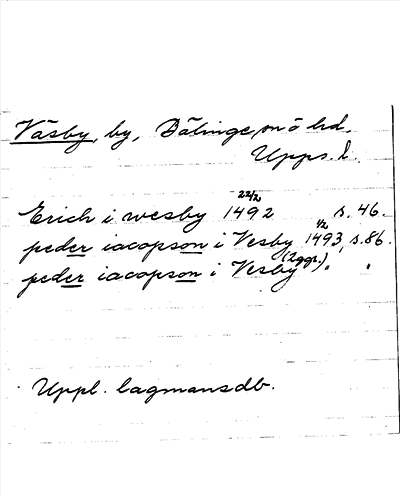 Väsby, by, Bälinge sn o hd.
Upps. l.
Erich i wesby 22/2 1492 s. 46.
peder iacopson i Vesby 1/2 1493, s. 86.
peder iacopson i Vesby (2 ggr.) " "
Uppl. lagmansdb.